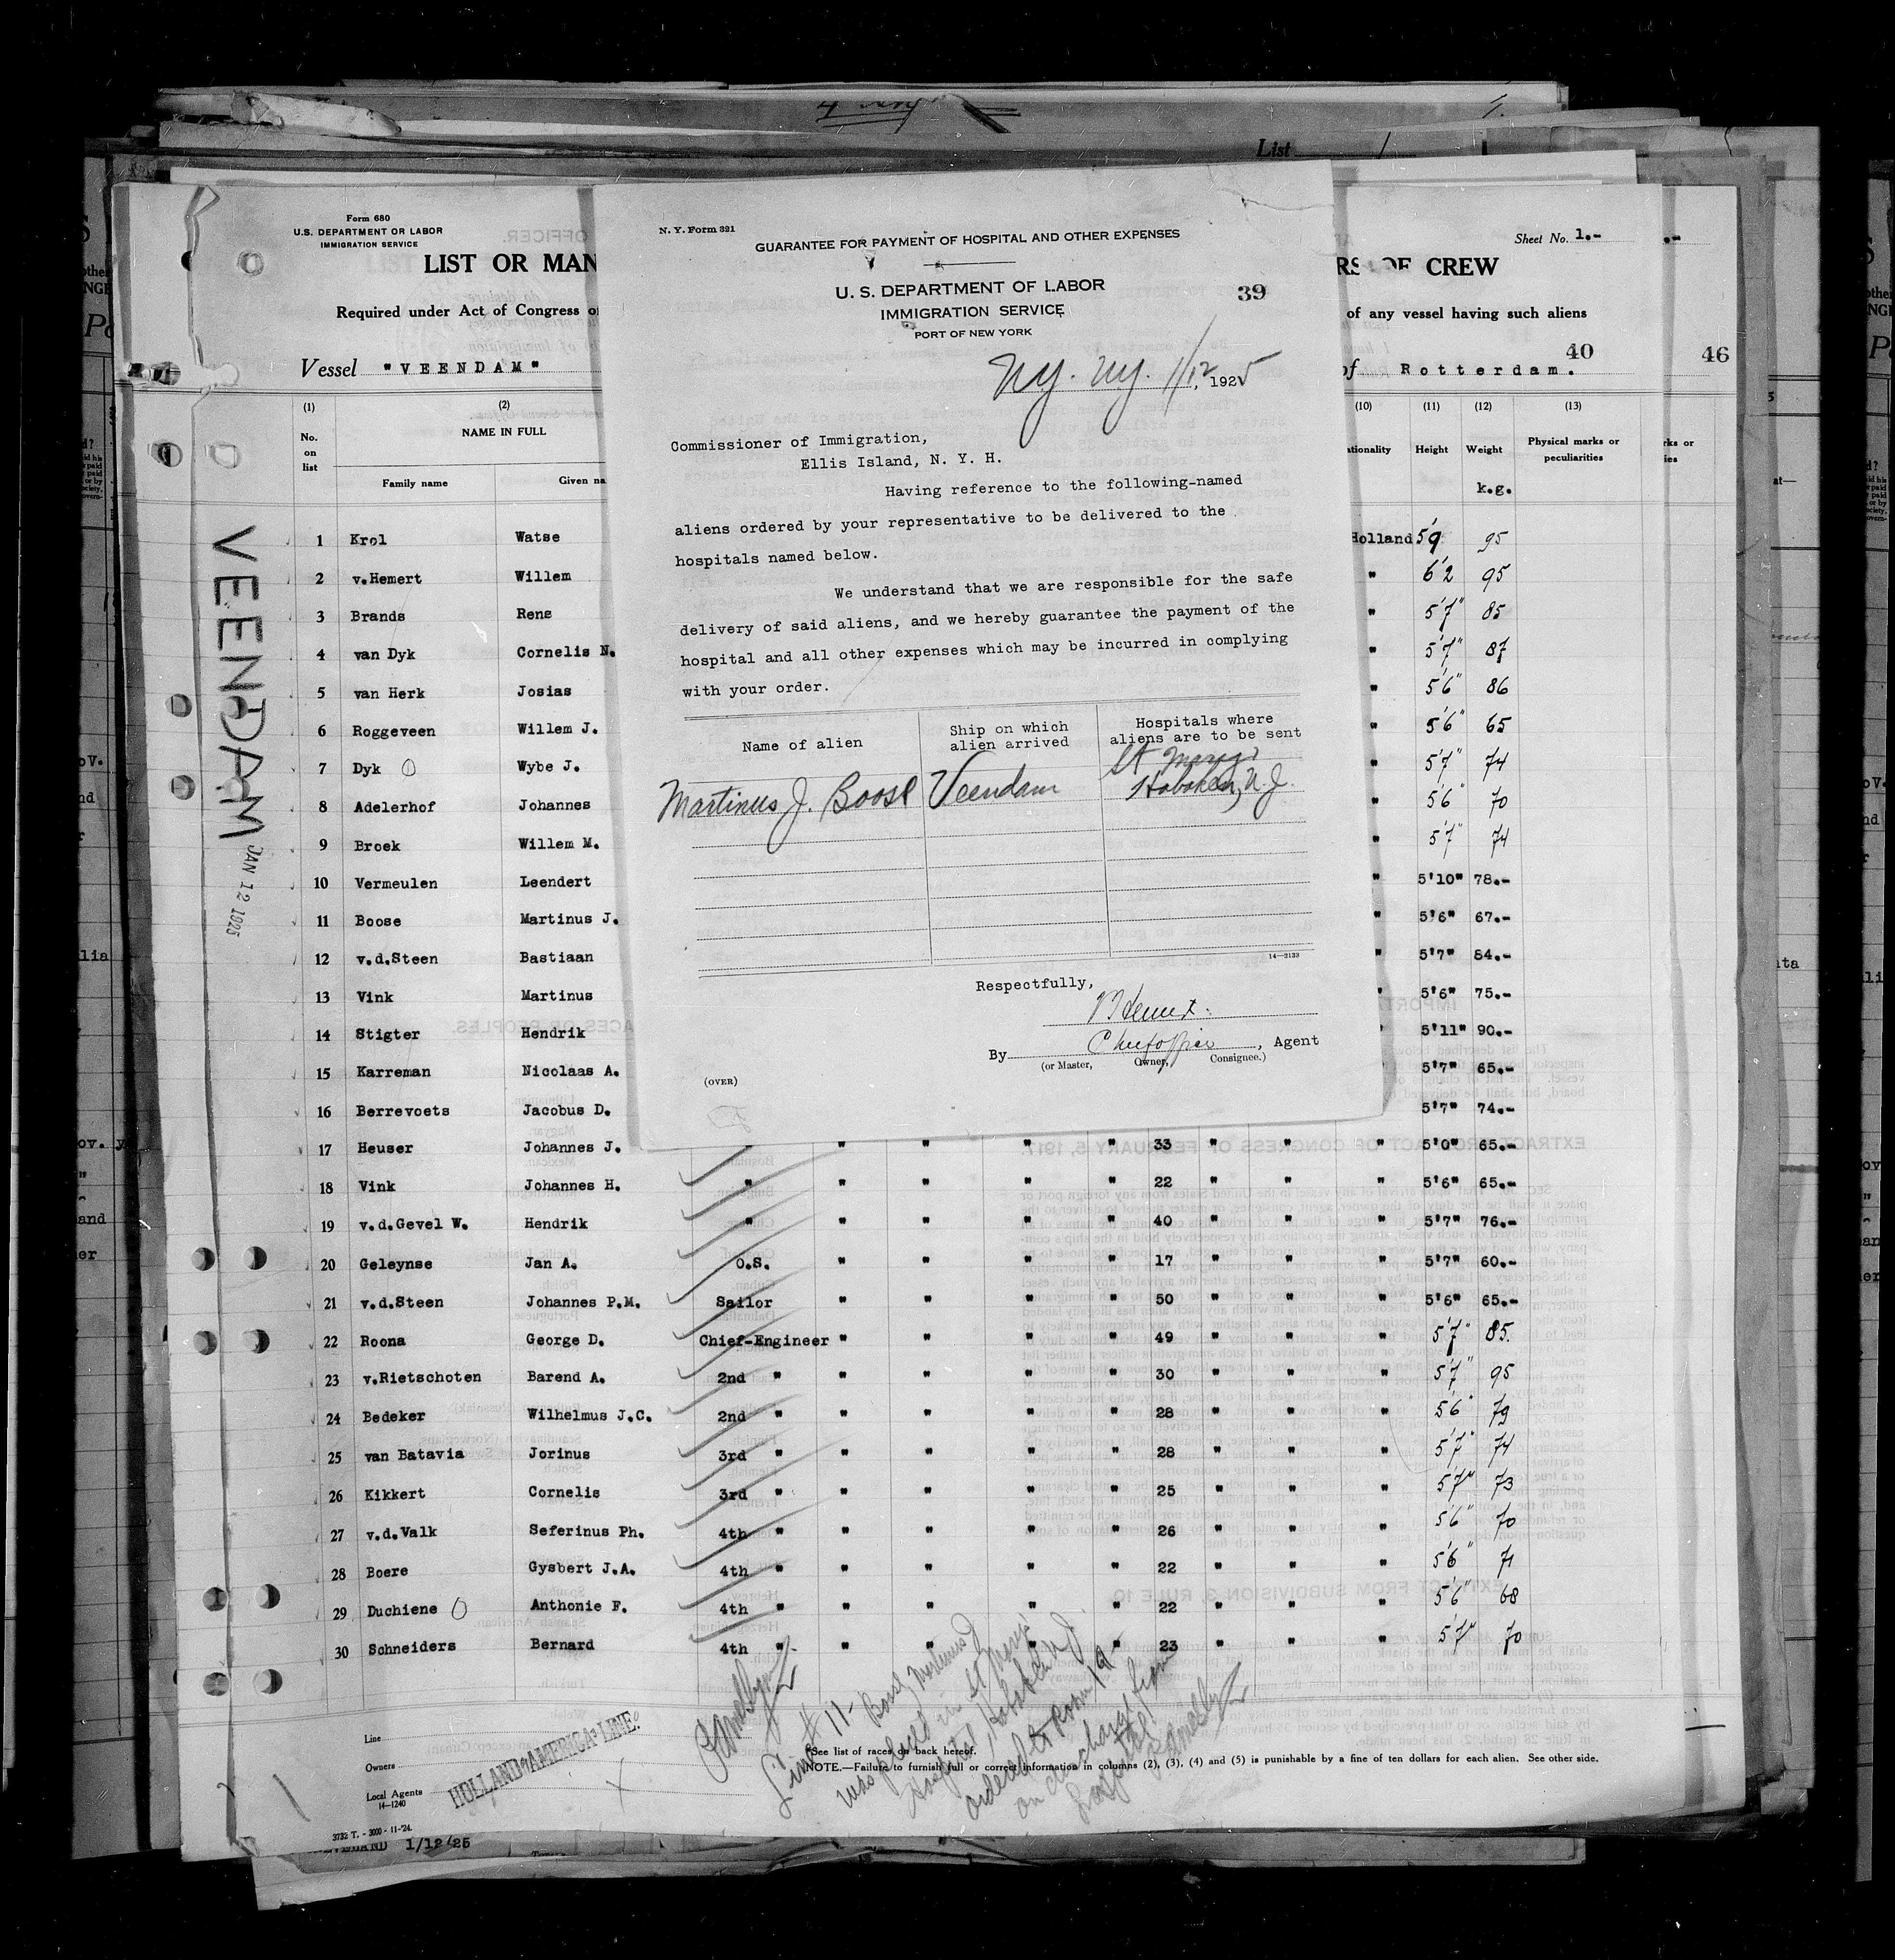 List
Form 680
U.S. DEPARTMENT OR LABOR
IMMIGRATION SERVICE
LIST OR MAN
Required under Act of Congress o
Vessel "VEENDAM"
(1) (2)
No. on list
NAME IN FULL
Family name Given na
N. Y. Form 321
GUARANTEE FOR PAYMENT OF HOSPITAL AND OTHER EXPENSES
U. S. DEPARTMENT OF LABOR
39
IMMIGRATION SERVICE
PORT OF NEW YORK
Ny. Ny. 1/12, 1925
Commissioner of Immigration,
Ellis Island, N. Y. H.
Having reference to the following-named
aliens ordered by your representative to be delivered to the
hospitals named below.
We understand that we are responsible for the safe
delivery of said aliens, and we hereby guarantee the payment of the
hospital and all other expenses which may be incurred in complying
with your order.
Name of alien
Ship on which
alien arrived
Hospitals where
aliens are to be sent
Martinus J. Boose Veendam St Marys
Hoboken, N. J.
14—2133
Respectfully,
By Chief officer, Agent
(or Master, Owner, Consignee.)
(OVER)
Sheet No. 1.-
.-
RS OF CREW
of any vessel having such aliens
40
46
of Rotterdam.
(10) (11) (12) (13)
ationality Height Weight Physical marks or
peculiarities
rks or
ies
k.g.
VEENDAM JAN 12 1925
1 Krol Watse Holland 5'9 95
2 v.Hemert Willem " 6'2 95
3 Brands Rens " 5'7" 85
4 van Dyk Cornelis N. " 5'7" 87
5 van Herk Josias " 5'6" 86
6 Roggeveen Willem J. " 5'6" 65
7 Dyk Wybe J. " 5'7" 74
8 Adelerhof Johannes " 5'6" 70
9 Broek Willem M. " 5'7" 74
10 Vermeulen Leendert " 5'10" 78.-
11 Boose Martinus J. " 5'6" 67.-
12 v.d.Steen Bastiaan " 5'7" 84.-
13 Vink Martinus " 5'6" 75.-
14 Stigter Hendrik " 5'11" 90.-
15 Karreman Nicolaas A. 5'7" 65.-
16 Berrevoets Jacobus D. 5'7" 74.-
17 Heuser Johannes J. " " " " 33 " " " 5'0" 65.-
18 Vink Johannes H. " " " " " 22 " " " 5'6" 65.-
19 v.d.Gevel W. Hendrik " " " " " 40 " " " 5'7" 76.-
20 Geleynse Jan A. O.S. " " " " 17 " " " 5'7" 60.-
21 v.d.Steen Johannes P.M. Sailor " " " " 50 " " " 5'6" 65.-
22 Roona George D. Chief-Engineer " " " " 49 " " " 5'7" 85.
23 v.Rietschoten Barend A. 2nd " " " " " 30 " " " 5'7" 95
24 Bedeker Wilhelmus J.C. 2nd " " " " " 28 " " " 5'6" 79
25 van Batavia Jorinus 3rd " " " " " 28 " " " 5'7" 74
26 Kikkert Cornelis 3rd " " " " " 25 " " " 5'7" 73
27 v.d.Valk Seferinus Ph. 4th " " " " " 26 " " " 5'6" 70
28 Boere Gysbert J.A. 4th " " " " " 22 " " " 5'6" 71
29 Duchiene Anthonie F. 4th " " " " " 22 " " " 5'6" 68
30 Schneiders Bernard 4th " " " " " 23 " " " 5'7" 70
Line # 11- Boose, Martinus J
was placed in St Marys
Hospital, Hoboken N.J.
ordered to Room 19
on discharge from
hospital
Line
Owners
Local Agents
14—1240
HOLLAND-AMERICA-LINE.
*See list of races on back hereof.
NOTE.—Failure to furnish full or correct information in columns (2), (3), (4) and (5) is punishable by a fine of ten dollars for each alien. See other side.
3732 T. - 3000 - 11-'24.
1/12/25